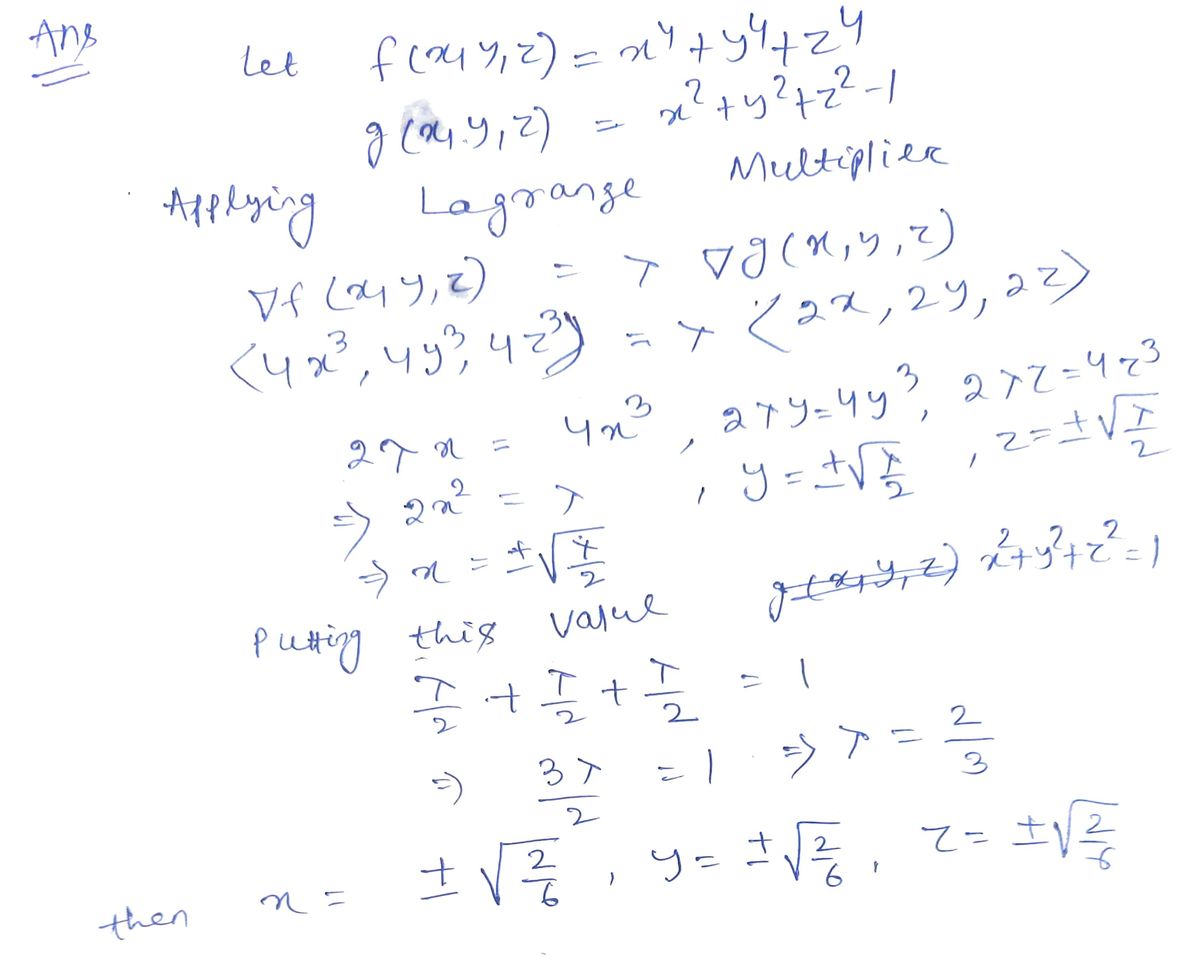 Ans
Let f(x, y, z) = x⁴ + y⁴ + z⁴
g(x, y, z) = x² + y² + z² - 1
Applying Lagrange Multiplier
∇f(x, y, z) = λ ∇g(x, y, z)
<4x³, 4y³, 4z³> = λ <2x, 2y, 2z>
2λx = 4x³, 2λy = 4y³, 2λz = 4z³
⇒ 2x² = λ, y = ±√(λ/2), z = ±√(λ/2)
⇒ x = ±√(λ/2)
Putting this value x² + y² + z² = 1
λ/2 + λ/2 + λ/2 = 1
⇒ 3λ/2 = 1 ⇒ λ = 2/3
then x = ±√(2/6), y = ±√(2/6), z = ±√(2/6)